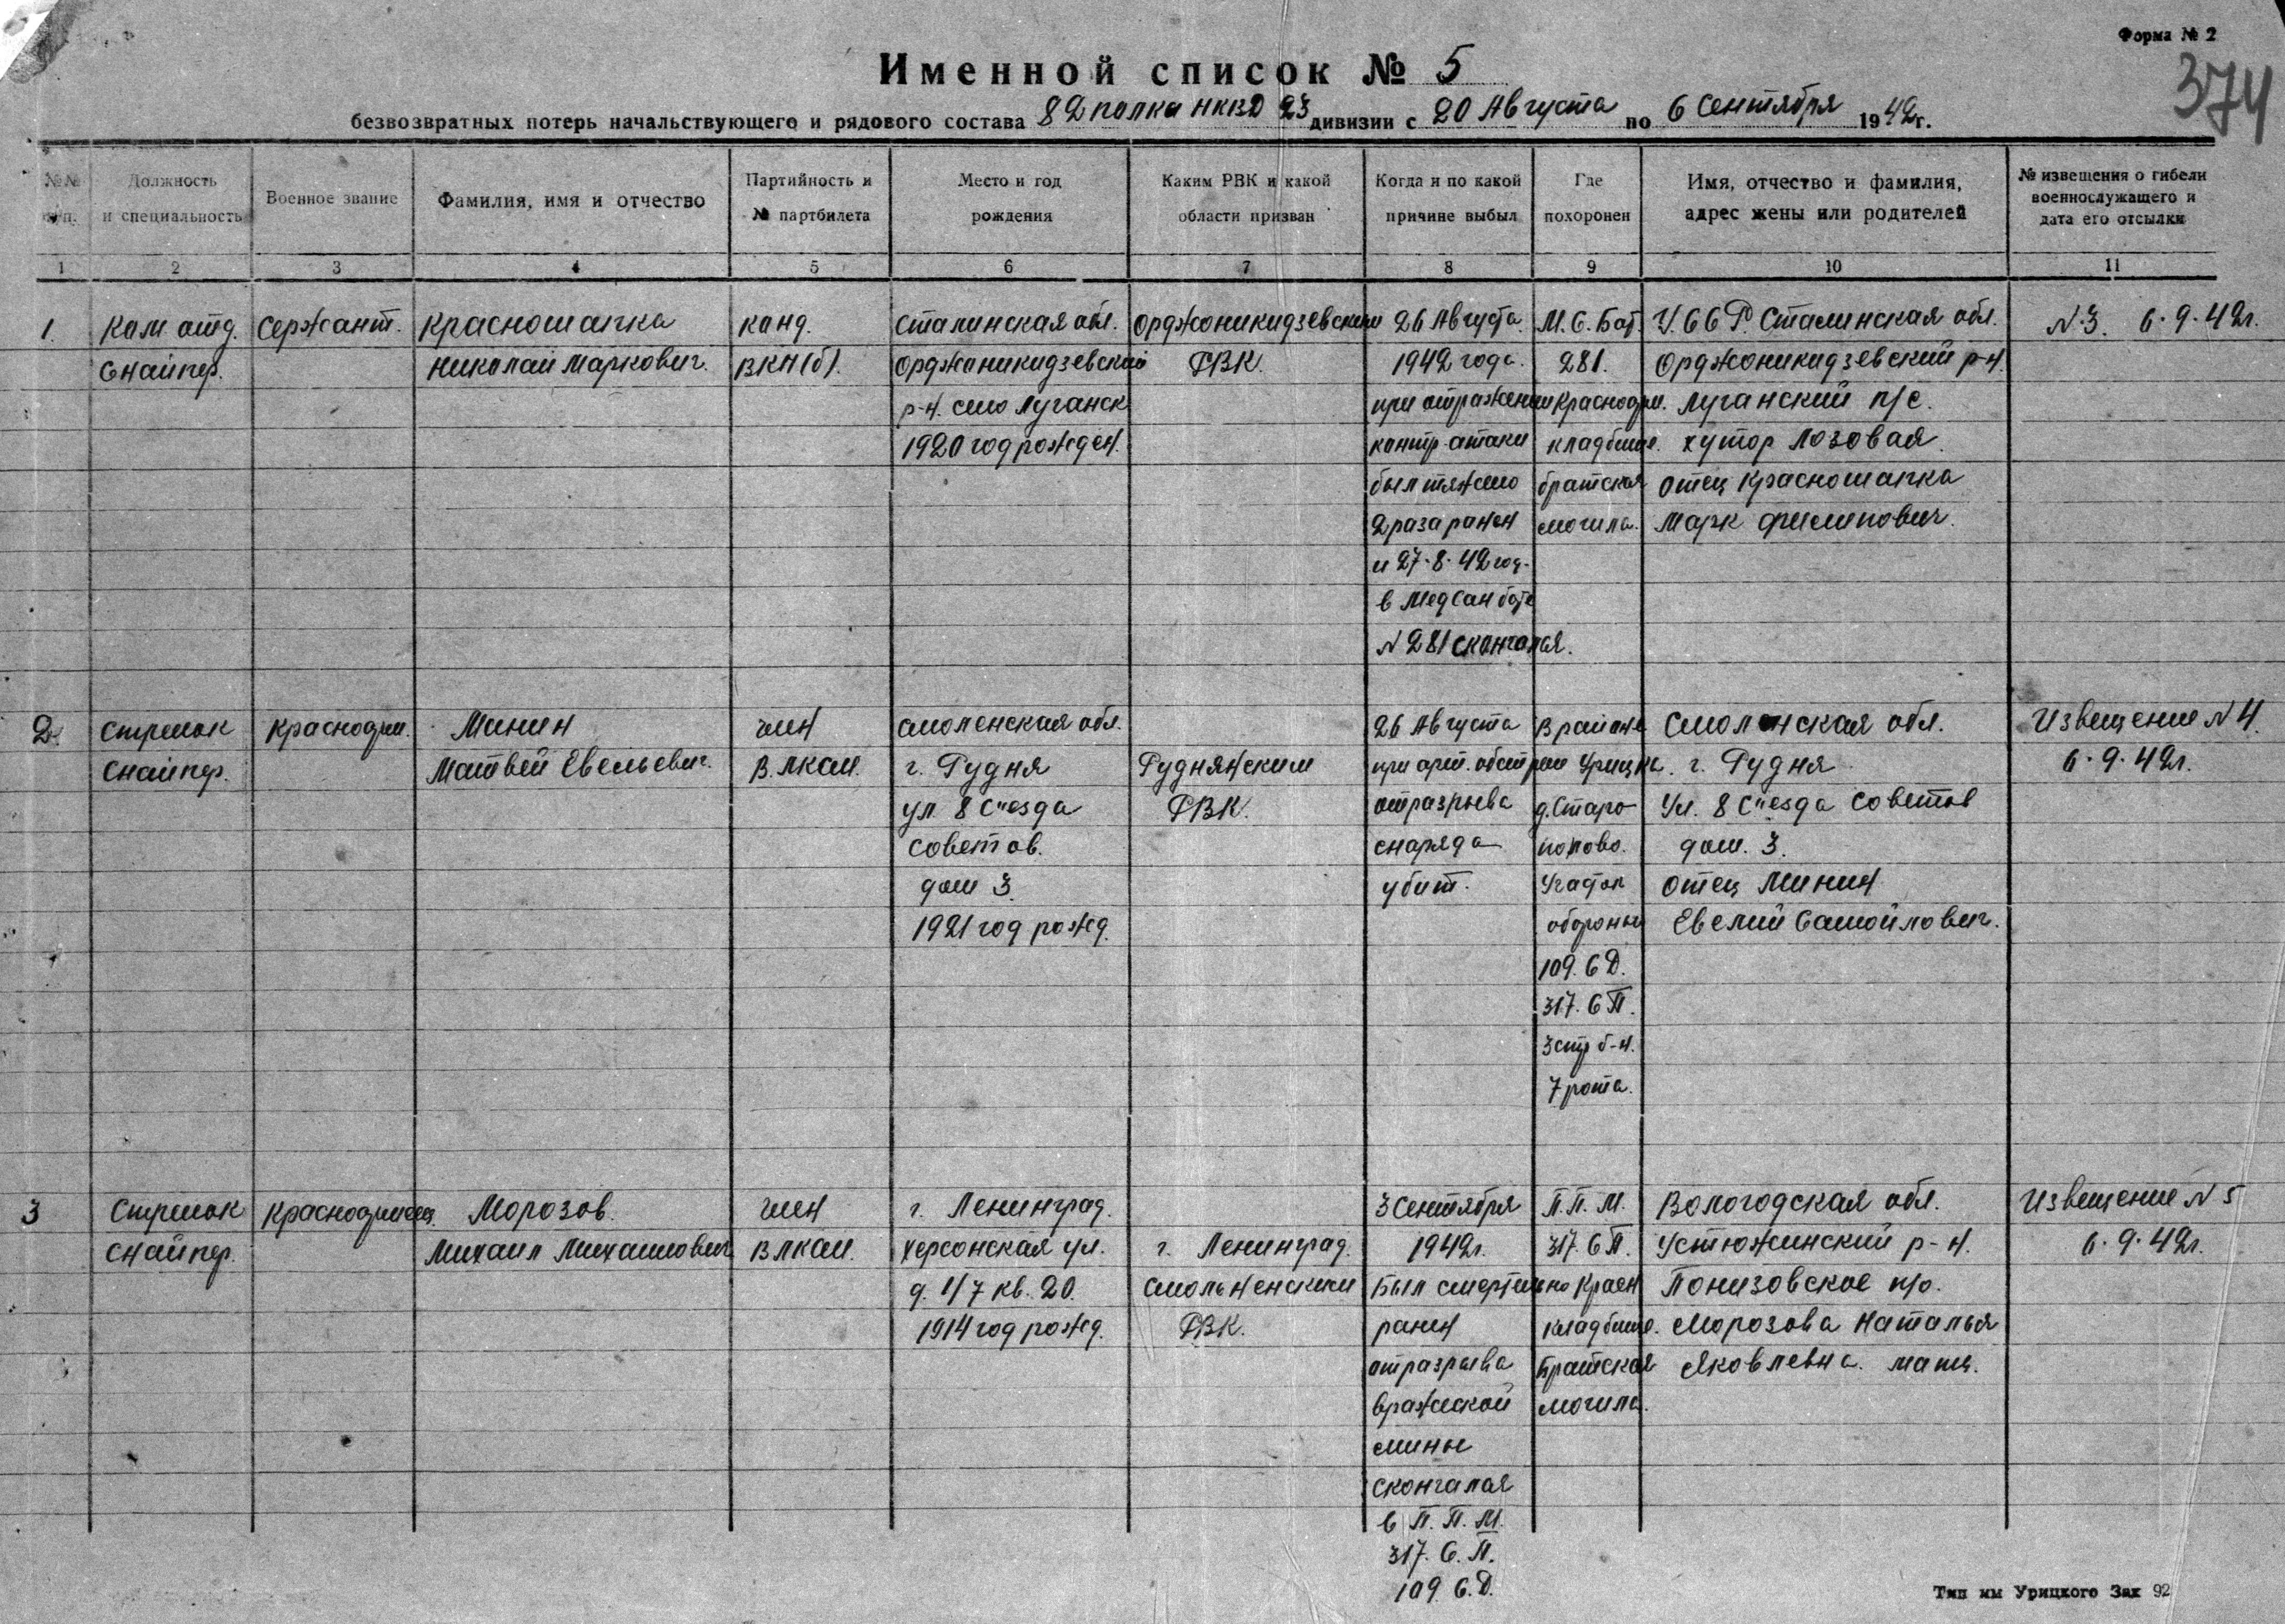 Форма № 2
374
Именной список № 5
безвозвратных потерь начальствующего и рядового состава 82 полка НКВД 23 дивизии с 20 Августа по 6 Сентября 1942г.
№№ п/п.
Должность
и специальность
Военное звание
Фамилия, имя и отчество
Партийность и
№ партбилета
Место и год
рождения
Каким РВК и какой
области призван
Когда и по какой
причине выбыл
Где
похоронен
Имя, отчество и фамилия,
адрес жены или родителей
№ извещения о гибели
военнослужащего и
дата его отсылки
1 2 3 4 5 6 7 8 9 10 11
1.
Ком отд.
Снайпер.
Сержант.
Красношапка
Николай Маркович.
канд.
ВКП(б).
Сталинская обл.
Орджоникидзевский
р-н. село Луганск
1920 год рожден.
Орджоникидзевским
РВК.
26 Августа
1942 года.
при отражении
контр-атаки
был тяжело
2 раза ранен
и 27.8.42 год.
в Медсанбате
N 281 скончался.
М.С.Бат.
281.
Красноарм.
кладбище.
братская
могила.
У.ССР. Сталинская обл.
Орджоникидзевский р-н.
Луганский п/с.
хутор Лозовая.
отец Красношапка
Марк Филипович.
N.3. 6.9.42г.
2.
Стрелок
Снайпер.
Красноарм.
Минин
Матвей Евельевич.
член
В.ЛКСМ.
Смоленская обл.
г. Рудня
ул. 8 Съезда
Советов.
дом 3.
1921 год рожд.
Руднянским
РВК.
26 Августа
при арт. обстреле
от разрыва
снаряда
убит.
В районе
Урицка.
д. Старо
паново.
Участок
обороны
109. СД.
317. СП.
3 стр б-н.
7 рота.
Смоленская обл.
г. Рудня
Ул. 8 Съезда Советов
дом. 3.
отец Минин
Евелий Самойлович.
Извещение N 4.
6.9.42г.
3
Стрелок
Снайпер.
Красноармеец.
Морозов.
Михаил Михайлович
член
ВЛКСМ.
г. Ленинград.
Херсонская ул.
д. 1/7 кв. 20.
1914 год рожд.
г. Ленинград.
Смольненским
РВК.
3 Сентября
1942г.
Был смертельно
ранен
от разрыва
вражеской
мины
скончался
в П.П.М.
317. С.П.
109 С.Д.
П.П.М.
317. СП.
Красн
кладбище.
Братская
могила.
Вологодская обл.
Устюжинский р-н.
Понизовское п/о.
Морозова Наталья
Яковлевна. мать.
Извещение N 5
6.9.42г.
Тип им Урицкого Зак 92